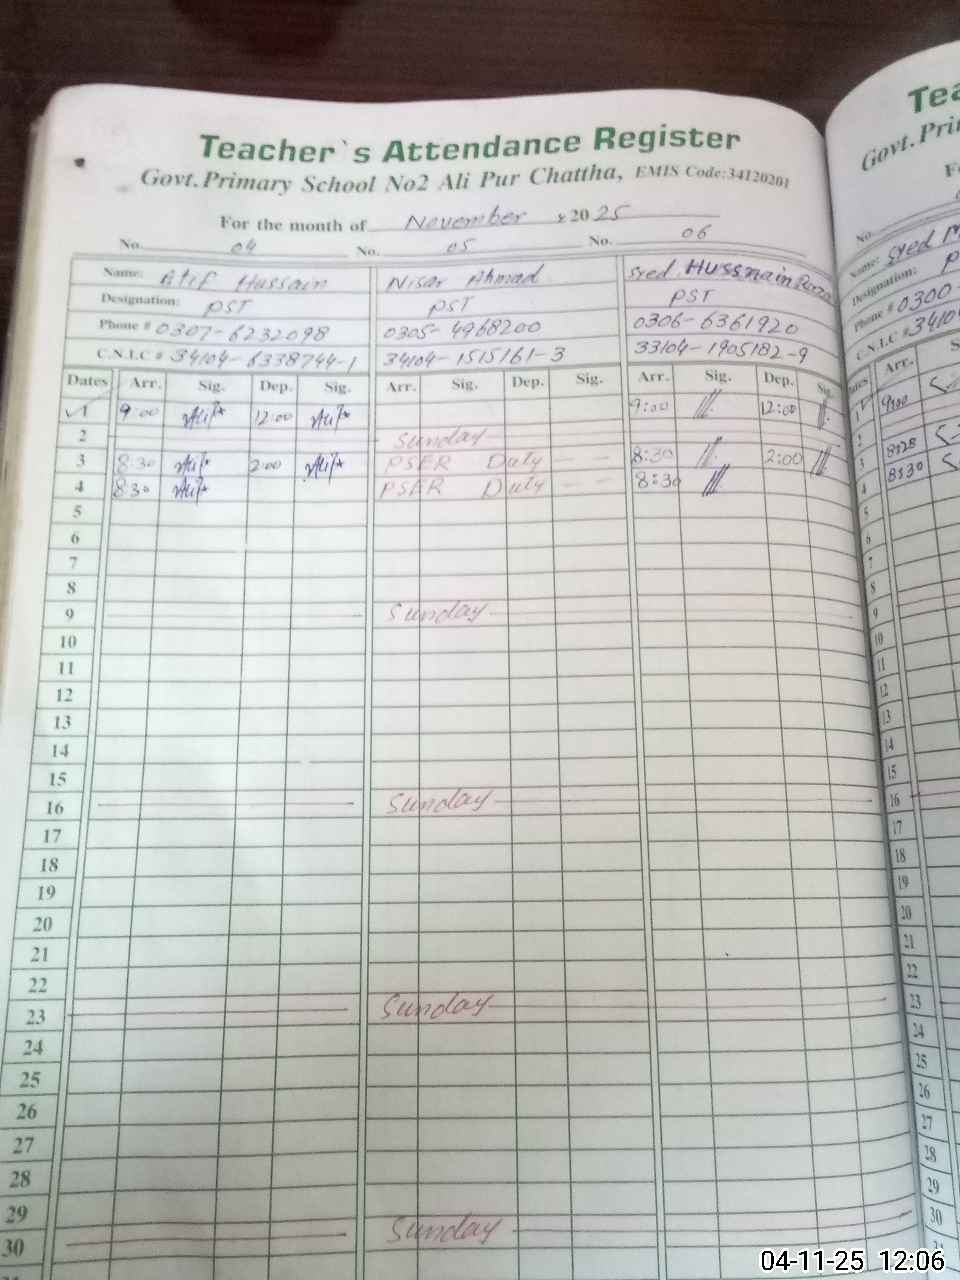 Teacher`s Attendance Register
Govt.Primary School No2 Ali Pur Chattha, EMIS Code:34120201
For the month of November 2025
No. 04 No. 05 No. 06
Name: Atif Hussain Nisar Ahmad Syed Hussnain Raza
Designation: PST PST PST
Phone # 0307-6232098 0305-4968200 0306-6361920
C.N.I.C # 34104-6338744-1 34104-1515161-3 33104-1905182-9
Dates Arr. Sig. Dep. Sig. Arr. Sig. Dep. Sig. Arr. Sig. Dep. Sig.
1 9:00 12:00 9:00 12:00
2 Sunday
3 8:30 2:00 PSER Duty 8:30 2:00
4 8:30 PSER Duty 8:30
5
6
7
8
9 Sunday
10
11
12
13
14
15
16 Sunday
17
18
19
20
21
22
23 Sunday
24
25
26
27
28
29
30 Sunday
Tea
Govt.Pri
No.
Name: Syed M
Designation: P
Phone # 0300-
C.N.I.C # 34104
Dates Arr. S
1 9:00
2
3 8:28
4 8:30
5
6
7
8
9
10
11
12
13
14
15
16
17
18
19
20
21
22
23
24
25
26
27
28
29
30
04-11-25 12:06